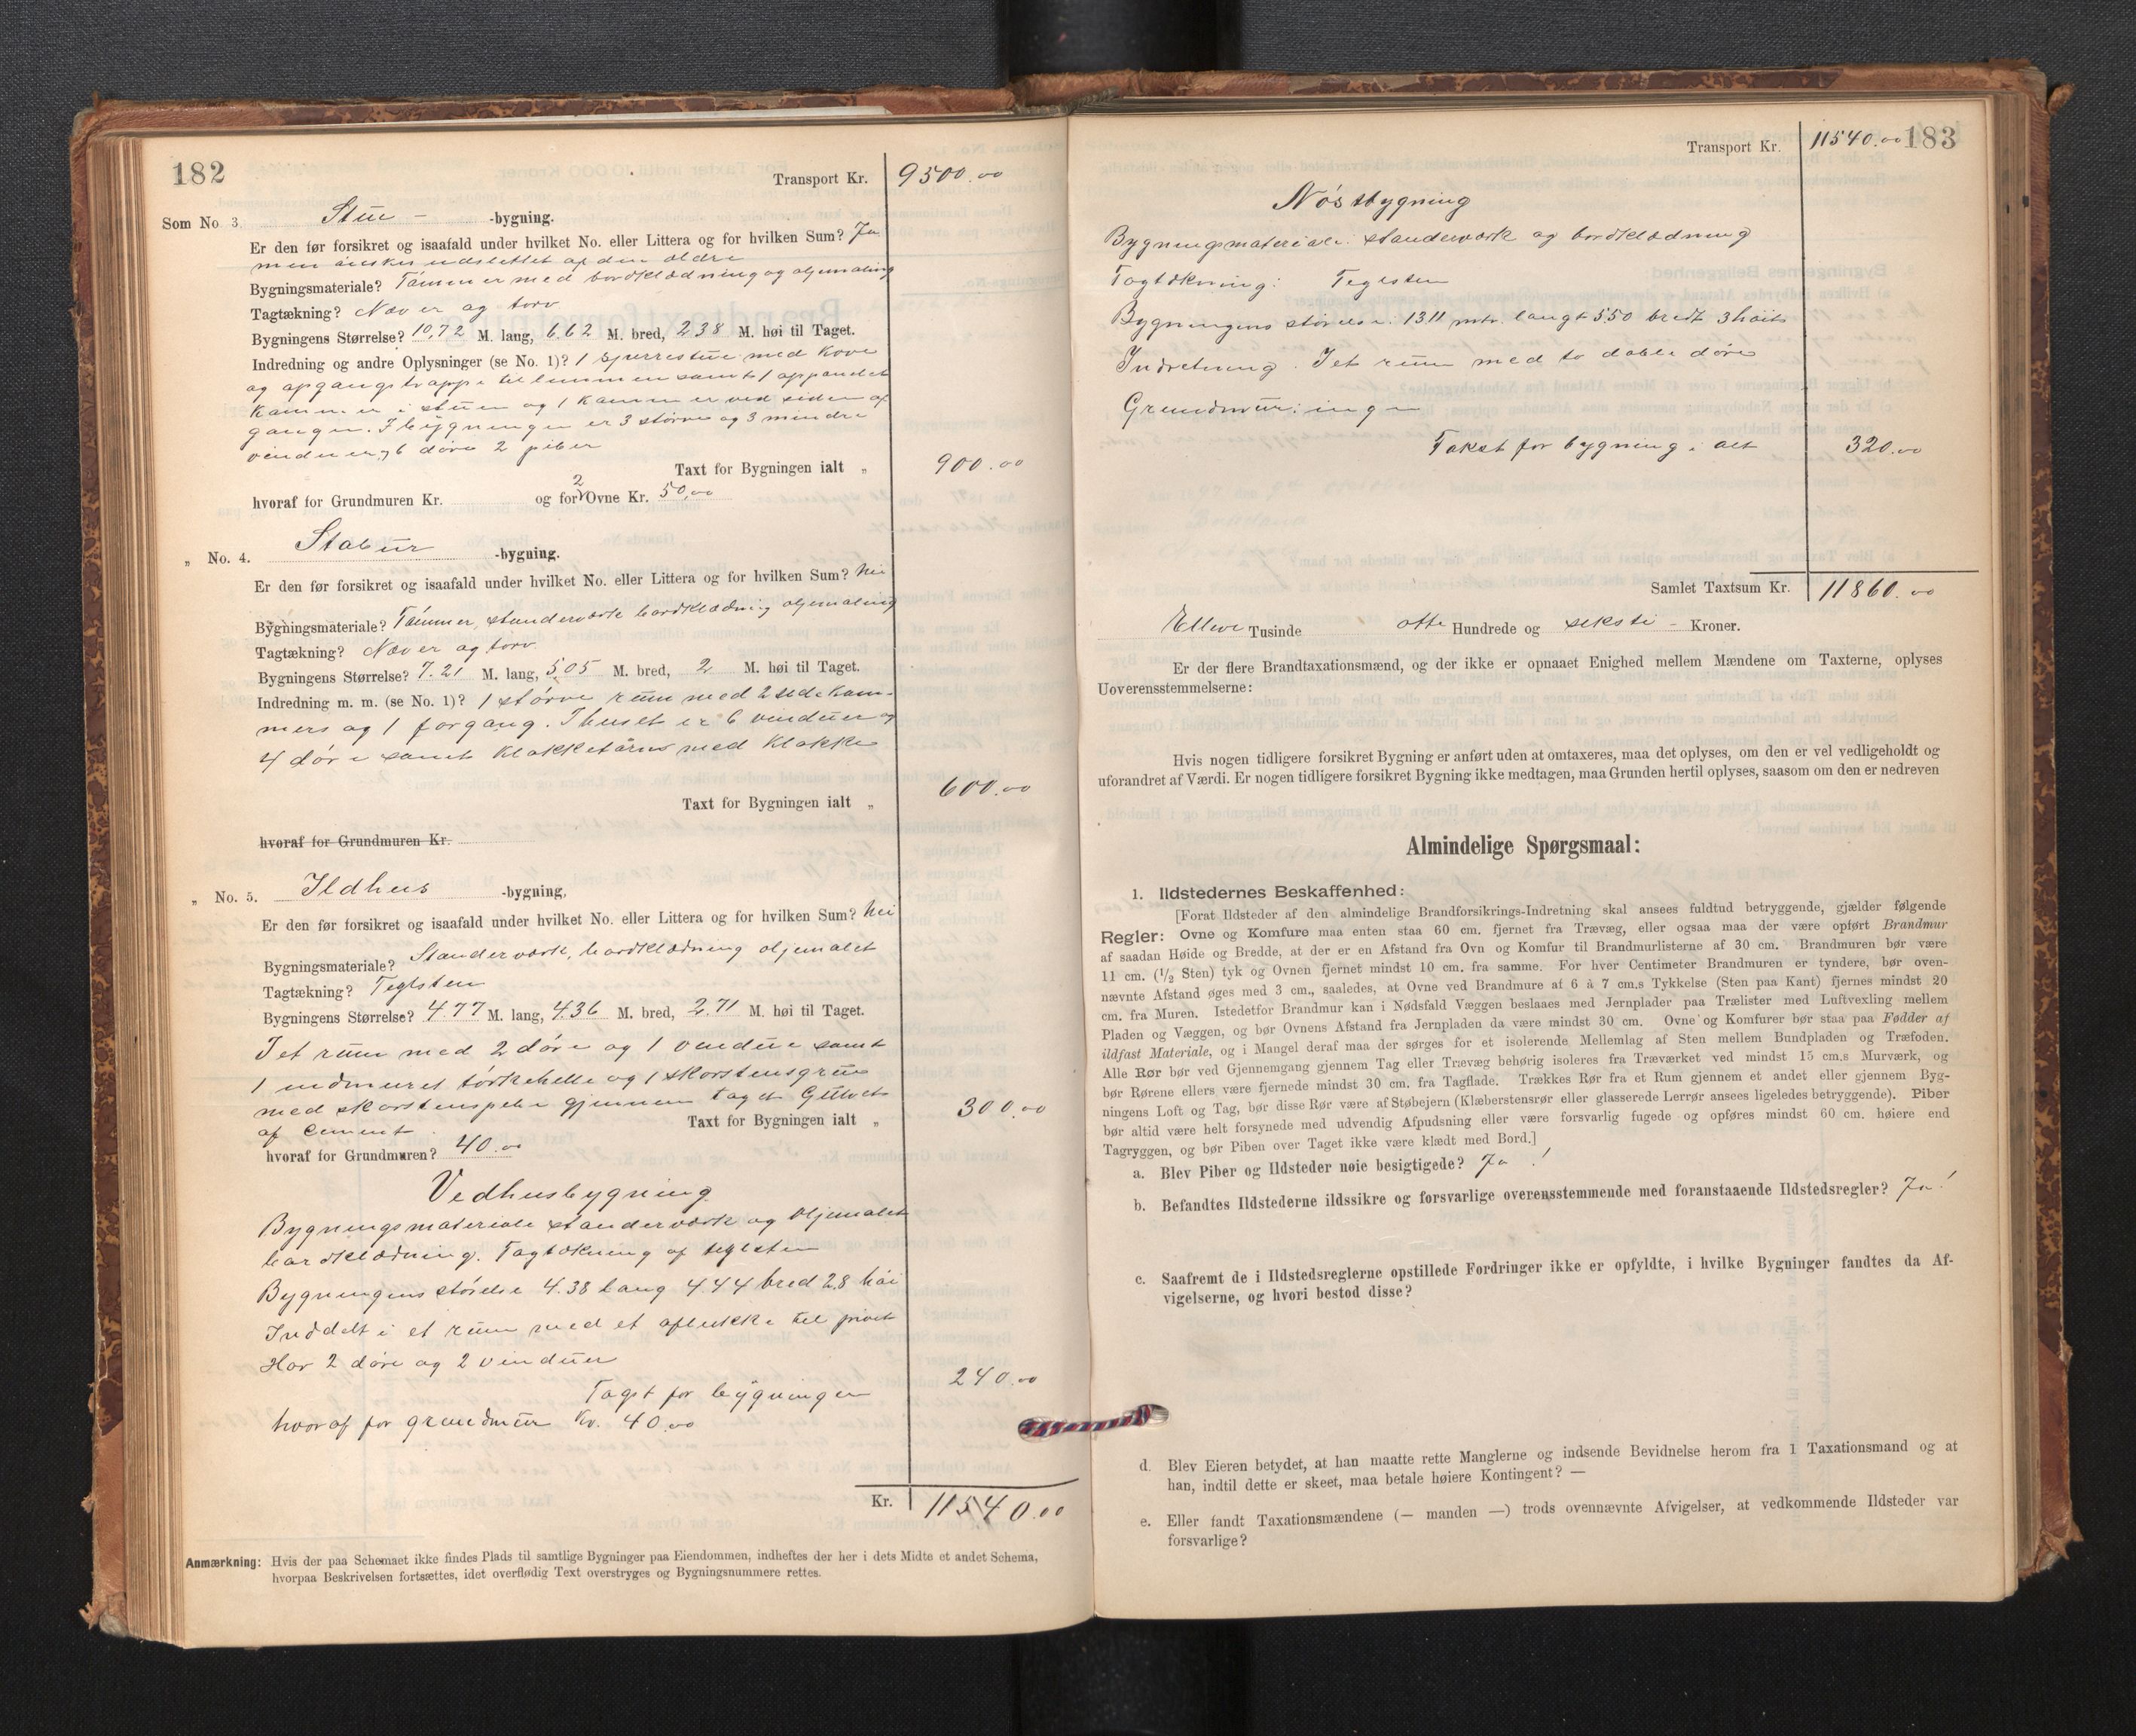 182
Transport Kr. 9500.00
Som No. 3. Stue - -bygning.
Er den før forsikret og isaafald under hvilket No. eller Littera og for hvilken Sum? Ja
men önskes udslettet af den ældre
Bygningsmateriale? Tömmer med bordklædning og oljemaling
Tagtækning? Næver og torv
Bygningens Størrelse? 10,72 M. lang, 6 62 M. bred, 2 38 M. høi til Taget.
Indredning og andre Oplysninger (se No. 1)? 1 sperrestue med Kove
og opgangstrappe til lemmen samt 1 oppandet
Kammer i stuen og 1 Kammer ved siden af
gangen. I bygningen er 3 större og 3 mindre
vinduer, 6 döre 2 piber
Taxt for Bygningen ialt „ 900.00
hvoraf for Grundmuren Kr. og for 2 Ovne Kr. 50,00
„ No. 4. Stabur -bygning.
Er den før forsikret og isaafald under hvilket No. eller Littera og for hvilken Sum? Nei
Bygningsmateriale? Tömmer, standerværk bordklædning oljemaling
Tagtækning? Næver og torv
Bygningens Størrelse? 7.21 M. lang, 5 05 M. bred, 2 M. høi til Taget.
Indredning m. m. (se No. 1)? 1 större rum med 2 sidekam-
mers og 1 forgang. I huset er 6 vinduer og
4 döre samt Klokketårn med Klokke
Taxt for Bygningen ialt „ 600.00
hvoraf for Grundmuren Kr.
„ No. 5. Ildhus -bygning,
Er den før forsikret og isaafald under hvilket No. eller Littera og for hvilken Sum? Nei
Bygningsmateriale? Standerværk, bordklædning oljemalet
Tagtækning? Teglsten
Bygningens Størrelse? 4.77 M. lang, 4.36 M. bred, 2.71 M. høi til Taget.
I et rum med 2 döre og 1 vindue samt
1 indmuret törkehelle og 1 skorstensgrue
med skorstenspibe gjennem taget Gulvet
af Cement
Taxt for Bygningen ialt „ 300.00
hvoraf for Grundmuren? 40.00
Vedhusbygning
Bygningsmateriale standerværk og Oljemalet
bordklædning. Tagtækning af teglsten
Bygningens störelse 4.38 lang 4.44 bred 2.8 höi
Inddelt i et rum med et aflukke til privet
Har 2 döre og 2 vinduer
Tagst for bygningen 240.00
hvoraf for grundmur Kr. 40.00
Kr. 11540.00
Anmærkning: Hvis der paa Schemaet ikke findes Plads til samtlige Bygninger paa Eiendommen, indheftes der her i dets Midte et andet Schema,
hvorpaa Beskrivelsen fortsættes, idet overflødig Text overstryges og Bygningsnummere rettes.
183
Transport Kr. 11540.00
Nöstbygning
Bygningsmateriale: standerværk og bordklædning
Tagtækning: Teglsten
Bygningens störelse: 13.11 mtr. langt 5.50 bredt 3 höit
Indretning. I et rum med to doble döre
Grundmur: ingen
Takst for bygning i alt 320.00
Samlet Taxtsum Kr. 11860.00
Elleve Tusinde otte Hundrede og seksti - Kroner.
Er der flere Brandtaxationsmænd, og der ikke er opnaaet Enighed mellem Mændene om Taxterne, oplyses
Uoverensstemmelserne:
Hvis nogen tidligere forsikret Bygning er anført uden at omtaxeres, maa det oplyses, om den er vel vedligeholdt og
uforandret af Værdi. Er nogen tidligere forsikret Bygning ikke medtagen, maa Grunden hertil oplyses, saasom om den er nedreven
Almindelige Spørgsmaal:
1. Ildstedernes Beskaffenhed:
[Forat Ildsteder af den almindelige Brandforsikrings-Indretning skal ansees fuldtud betryggende, gjælder følgende
Regler: Ovne og Komfure maa enten staa 60 cm. fjernet fra Trævæg, eller ogsaa maa der være opført Brandmur
af saadan Høide og Bredde, at der er en Afstand fra Ovn og Komfur til Brandmurlisterne af 30 cm. Brandmuren bør være
11 cm. (1/2 Sten) tyk og Ovnen fjernet mindst 10 cm. fra samme. For hver Centimeter Brandmuren er tyndere, bør oven-
nævnte Afstand øges med 3 cm., saaledes, at Ovne ved Brandmure af 6 à 7 cm.s Tykkelse (Sten paa Kant) fjernes mindst 20
cm. fra Muren. Istedetfor Brandmur kan i Nødsfald Væggen beslaaes med Jernplader paa Trælister med Luftvexling mellem
Pladen og Væggen, og bør Ovnens Afstand fra Jernpladen da være mindst 30 cm. Ovne og Komfurer bør staa paa Fødder af
ildfast Materiale, og i Mangel deraf maa der sørges for et isolerende Mellemlag af Sten mellem Bundpladen og Træfoden.
Alle Rør bør ved Gjennemgang gjennem Tag eller Trævæg behørig isoleres fra Træværket ved mindst 15 cm.s Murværk, og
bør Rørene ellers være fjernede mindst 30 cm. fra Tagflade. Trækkes Rør fra et Rum gjennem et andet eller gjennem Byg-
ningens Loft og Tag, bør disse Rør være af Støbejern (Klæberstensrør eller glasserede Lerrør ansees ligeledes betryggende). Piber
bør altid være helt forsynede med udvendig Afpudsning eller være forsvarlig fugede og opføres mindst 60 cm. høiere end
Tagryggen, og bør Piben over Taget ikke være klædt med Bord.]
a. Blev Piber og Ildsteder nøie besigtigede? Ja !
b. Befandtes Ildstederne ildssikre og forsvarlige overensstemmende med foranstaaende Ildstedsregler? Ja!
c. Saafremt de i Ildstedsreglerne opstillede Fordringer ikke er opfyldte, i hvilke Bygninger fandtes da Af-
vigelserne, og hvori bestod disse?
d. Blev Eieren betydet, at han maatte rette Manglerne og indsende Bevidnelse herom fra 1 Taxationsmand og at
han, indtil dette er skeet, maa betale høiere Kontingent? —
e. Eller fandt Taxationsmændene (— manden —) trods ovennævnte Afvigelser, at vedkommende Ildsteder var
forsvarlige?